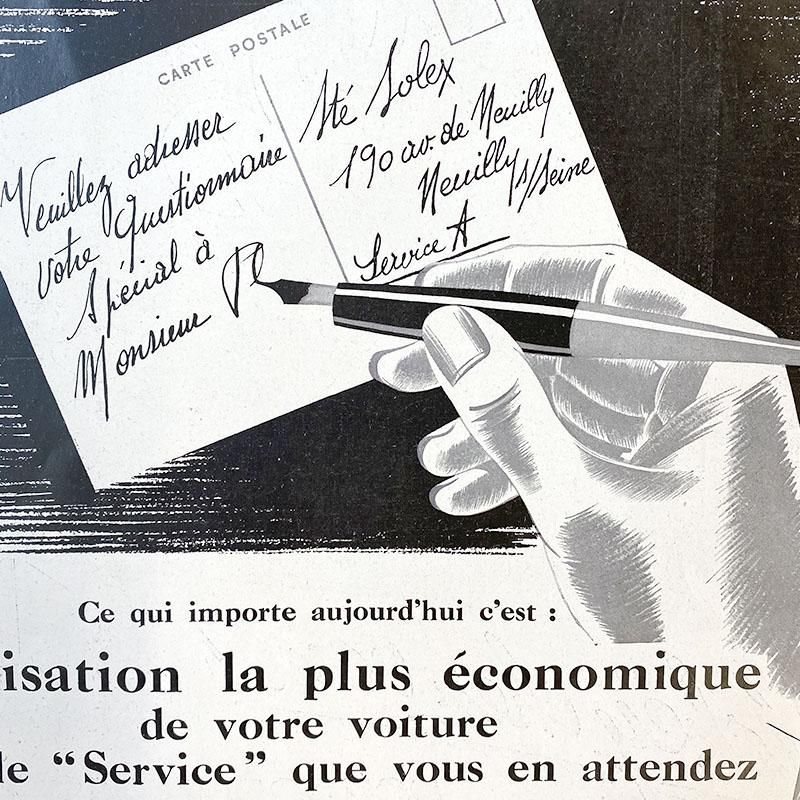 CARTE POSTALE
Veuillez adresser
votre Questionnaire
Spécial à
Monsieur
Sté Solex
190 av. de Neuilly
Neuilly s/Seine
Service A
Ce qui importe aujourd'hui c'est :
isation la plus économique
de votre voiture
le “Service” que vous en attendez